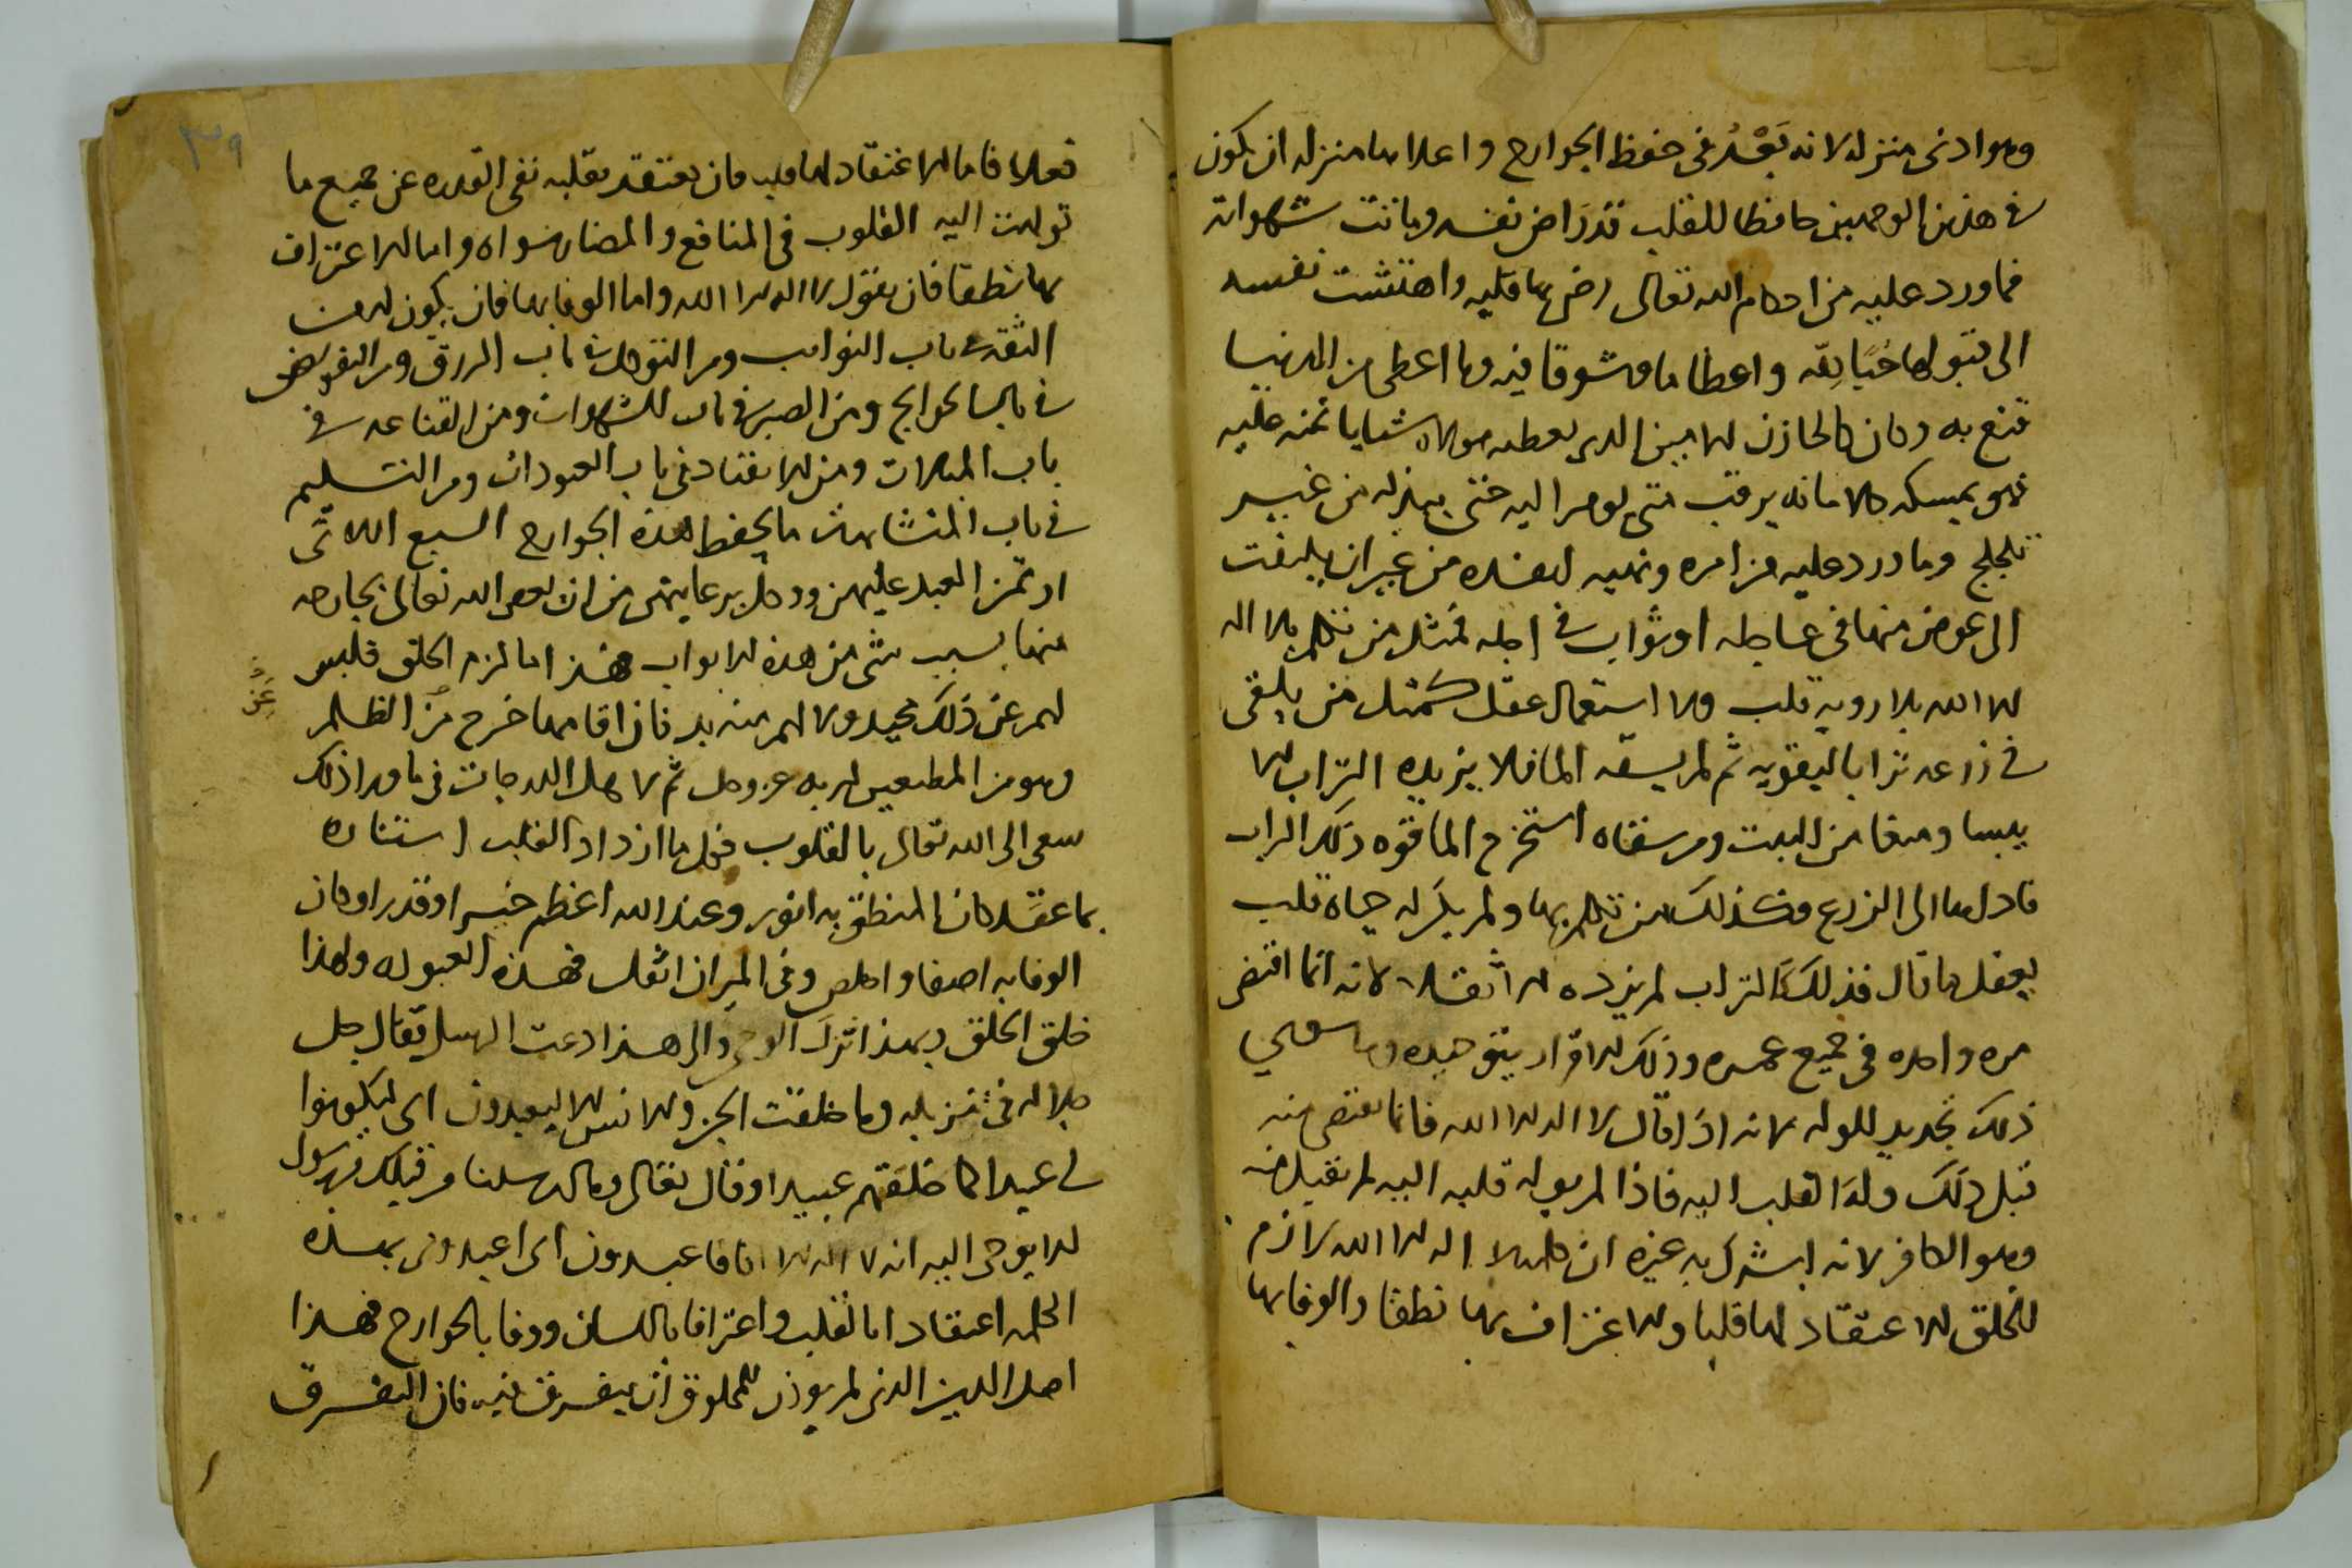 وهو ادنى منزله لانه بَعْدُ فى حفظ الجوارح واعلاها منزله ان يكون
فى هذين الوجهين حافظا للقلب قد رَاض نفسه وماتت شهواته
فما ورد عليه من احكام الله تعالى رضى بها قلبه واهتشت نفسه
الى قبولها حُبًا لِلّه واعظاما وشوقا فيه وما اعطى من الدنيا
قنع به وكان كالخازن الامين الذى يعطيه مولاه شيا يا تمنه عليه
فهو يمسكه كالامانه يرقب متى يومر اليه حتى يبذله من غير
تلجلج وما ورد عليه من امره ونهيه انفذه من غير ان يلتفت
الى عوض منها فى عاجله او ثواب فى اجله فمثل من تكلم بلا اله
الا الله بلا رويه قلب ولا استعمال عقل كمثل من يلقى
فى زرعه ترابا ليقويه ثم لم يسقه الما فلا يزيده التراب الا
يبسا ومنعا من النبت ومن سقاه استخرج الما قوه ذلك التراب
فادلها الى الزرع فكذلك من تكلم بها ولم يكن له حياه قلب
يعقل ما قال فذلك كالتراب لم يزده الا ثقلا لانه انما اقتضى
مره واحده فى جميع عمره وذلك الاقرار بتوحيده وما سوى
ذلك تجديد للوله لانه اذا قال لا اله الا الله فانما يقتضى منه
قبل ذلك وله القلب اليه فاذا لم يوله قلبه اليه لم يقبل منه
وهو الكافر لانه اشرك به غيره ان كلمه لا اله الا الله لازم
للخلق الاعتقاد لها قلبا والاعتراف بها نطقا والوفا بها
فعلا فاما الاعتقاد لها قلبا فان يعتقد بقلبه نفى القدره عن جميع ما
تولهت اليه القلوب فى المنافع والمضار سواه واما الاعتراف
بها نطقا فان يقول لا اله الا الله واما الوفا بها فان يكون له من
الثقه فى باب النوايب ومن التوكل فى باب الرزق ومن التفويض
فى باب الحوايج ومن الصبر فى باب الشهوات ومن القناعه فى
باب ومن الانقياد فى باب العبودات ومن التسليم
فى باب المتشابهات ما يحفظ هذه الجوارح السبع اللاتى
اوتمن العبد عليهن ووكل برعايتهن من ان يعصى الله تعالى بجارحه
منها بسبب شى من هذه الابواب فهذا ما لزم الخلق فليس
لهم عن ذلك محيد ولا لهم منه بد فان اقامها خرج من الظلم
وهو من المطيعين لربه عز وجل ثم لاهل الدرجات فى ما ورا ذلك
سعى الى الله تعالى بالقلوب فكل ما ازداد القلب استناره
بما عقد كان المنطق به انور وعند الله اعظم خيرا وقدرا وكان
الوفا به اصفا واخلص وفى الميزان اثقل فهذه العبوده ولهذا
خلق الخلق وبهذا انزل الوحى والى هذا دعت الرسل يقال جل
جلاله فى تنزيله وما خلقت الجن والانس الا ليعبدون اى ليكونوا
لى عبيدا كما خلقتهم عبيدا وقال تعالى وما ارسلنا من قبلك من رسول
الا يوحى اليه انه لا اله الا انا فاعبدون اى اعبدونى بهذه
الكلمه اعتقادا بالقلب واعترافا باللسان ووفا بالجوارح فهذا
اصل الدين الذى لم يوذن للمخلوق ان يتفرق فيه فان التفرق